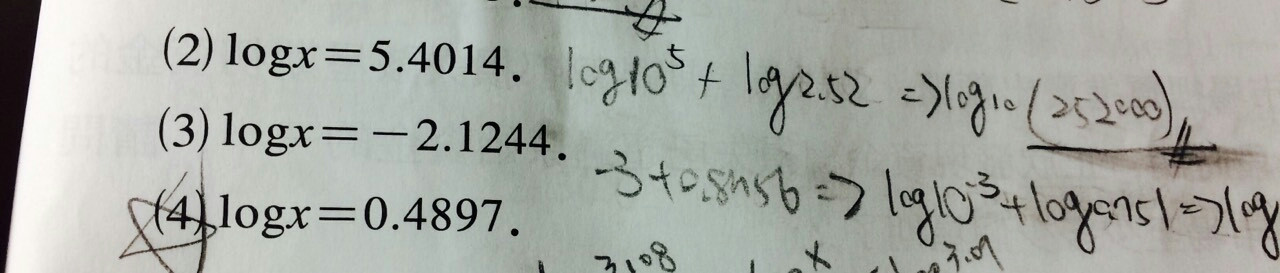 (2) logx=5.4014. log10⁵ + log2.52 => log₁₀(252000)
(3) logx=-2.1244. -3+0.8756 => log10⁻³+log0.751=>log
(4) logx=0.4897.
3.08 x 3.09